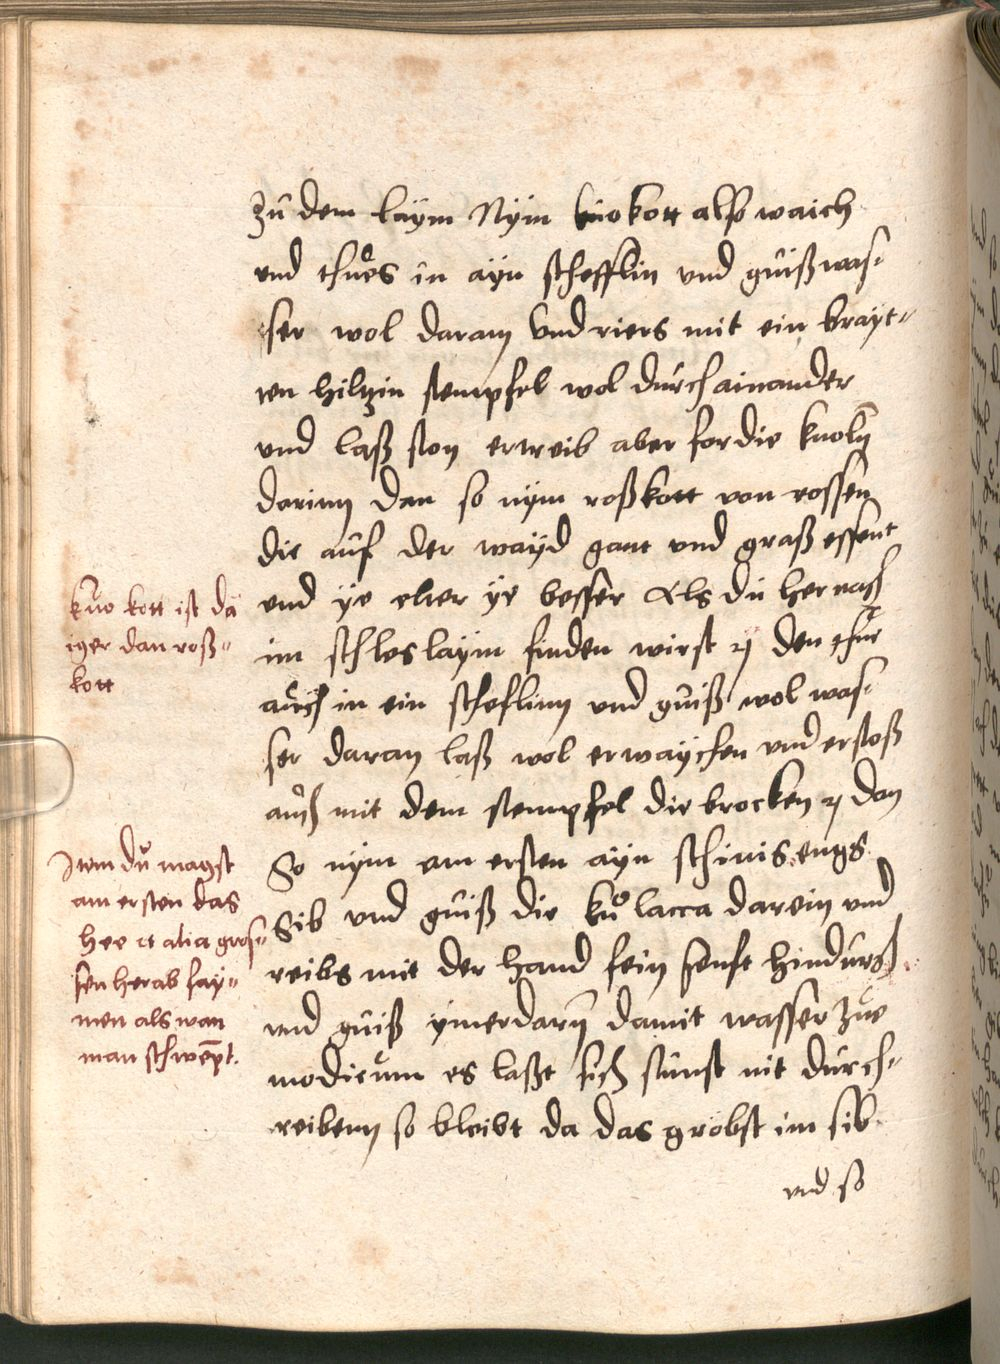 Zu dem laÿm Nÿm kuokott also waich
vnd thuͦes in aÿn schefflin vnd guiß was-
ser wol daran vnd riers mit ein braÿt-
ten hiltzin stempfel wol durchainander
vnd laß ston ertreib aber for die knoln̄
darinn dan so nÿm roßkott von rossen
die auf der waÿd gant vnd graß essent
vnd ÿe elter ÿe besser Als du hernach
im schleslaÿm finden wirst ꝛc den thuͦe
auch in ein scheflinn vnd guiß wol was-
ser daran laß wol erwaÿchen vnd erstoß
auch mit dem stempfel die brocken ꝛc dan
So nÿm am ersten aÿn schinis engs
Sib vnd guiß die kuͦ lacca darein vnd
reibs mit der hand fein senft hindurch
vnd guiß ÿmerdarn̄ damit wasser zue
modicum es laßt sich sunst nit durch-
reibenn so bleibt da das gröbst im sib
vnd so
kuo kott ist dä
iger dan roß-
kott
Item du magst
am ersten das
hee et alia gros-
sen herab faÿ-
men als wan
man schwept.